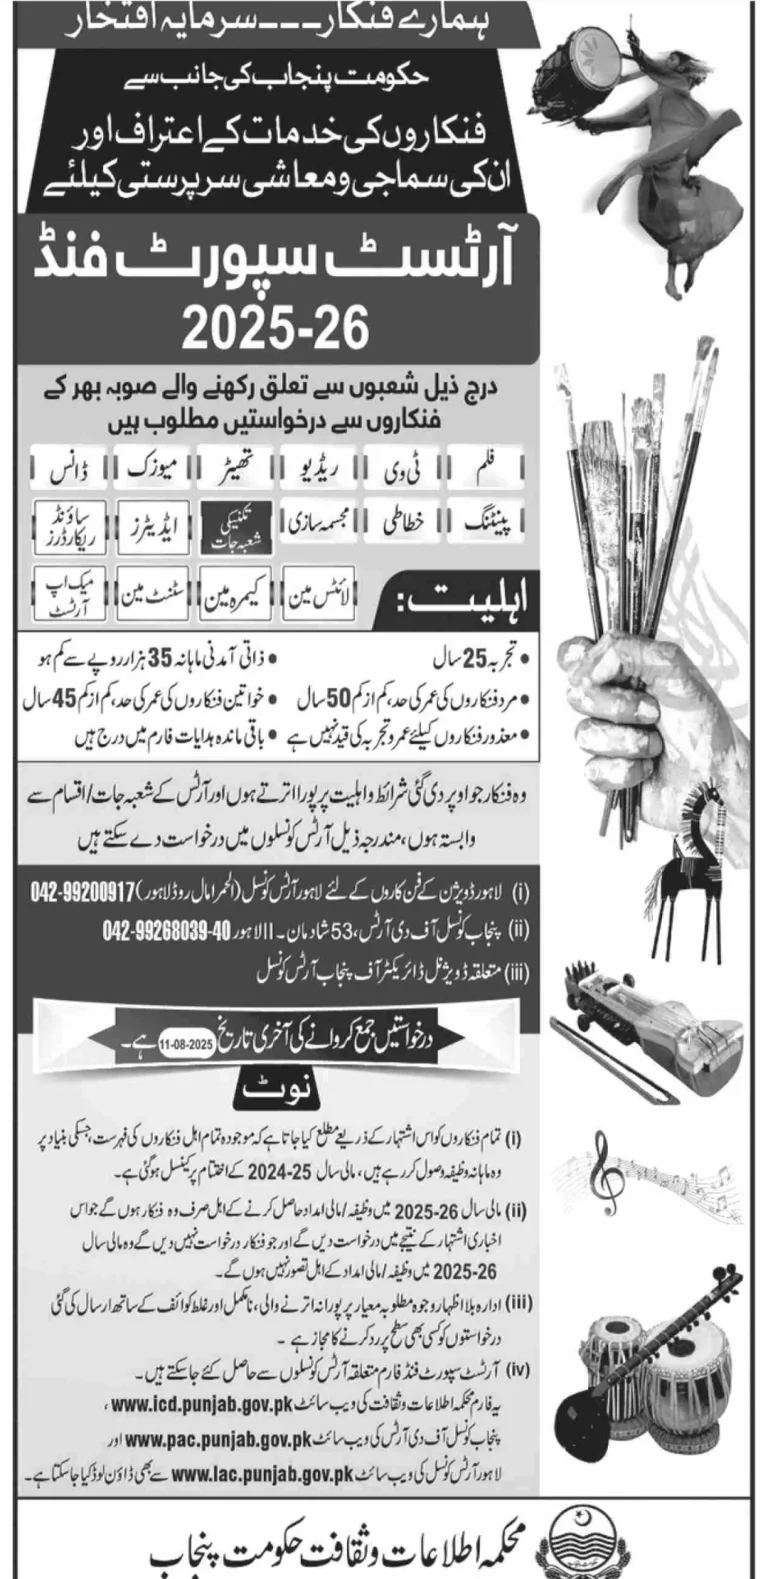 ہمارے فنکار۔۔۔سرمایہ افتخار
حکومت پنجاب کی جانب سے
فنکاروں کی خدمات کے اعتراف اور
ان کی سماجی و معاشی سرپرستی کیلئے
آرٹسٹ سپورٹ فنڈ
2025-26
درج ذیل شعبوں سے تعلق رکھنے والے صوبہ بھر کے
فنکاروں سے درخواستیں مطلوب ہیں
فلم ٹی وی ریڈیو تھیٹر میوزک ڈانس
پینٹنگ خطاطی مجسمہ سازی تکنیکی شعبہ جات ایڈیٹرز ساؤنڈ ریکارڈرز
لائٹس مین کیمرہ مین سٹنٹ مین میک اپ آرٹسٹ
اہلیت:
• تجربہ 25 سال • ذاتی آمدنی ماہانہ 35 ہزار روپے سے کم ہو
• مرد فنکاروں کی عمر کی حد، کم از کم 50 سال • خواتین فنکاروں کی عمر کی حد، کم از کم 45 سال
• معذور فنکاروں کیلئے عمر و تجربہ کی قید نہیں ہے • باقی ماندہ ہدایات فارم میں درج ہیں
وہ فنکار جو اوپر دی گئی شرائط و اہلیت پر پورا اترتے ہوں اور آرٹس کے شعبہ جات/اقسام سے
وابستہ ہوں، مندرجہ ذیل آرٹس کونسلوں میں درخواست دے سکتے ہیں
(i) لاہور ڈویژن کے فن کاروں کے لئے لاہور آرٹس کونسل (الحمرا مال روڈ لاہور) 042-99200917
(ii) پنجاب کونسل آف دی آرٹس، 53 شادمان۔II لاہور 042-99268039-40
(iii) متعلقہ ڈویژنل ڈائریکٹر آف پنجاب آرٹس کونسل
درخواستیں جمع کروانے کی آخری تاریخ 11-08-2025 ہے۔
نوٹ
(i) تمام فنکاروں کو اس اشتہار کے ذریعے مطلع کیا جاتا ہے کہ موجودہ تمام اہل فنکاروں کی فہرست، جسکی بنیاد پر
وہ ماہانہ وظیفہ وصول کر رہے ہیں، مالی سال 2024-25 کے اختتام پر کینسل ہو گئی ہے۔
(ii) مالی سال 2025-26 میں وظیفہ/مالی امداد حاصل کرنے کے اہل صرف وہ فنکار ہوں گے جو اس
اخباری اشتہار کے نتیجے میں درخواست دیں گے اور جو فنکار درخواست نہیں دیں گے وہ مالی سال
2025-26 میں وظیفہ/مالی امداد کے اہل تصور نہیں ہوں گے۔
(iii) ادارہ بلا اظہار وجوہ مطلوبہ معیار پر پورا نہ اترنے والی، نامکمل اور غلط کوائف کے ساتھ ارسال کی گئی
درخواستوں کو کسی بھی سطح پر رد کرنے کا مجاز ہے ۔
(iv) آرٹسٹ سپورٹ فنڈ فارم متعلقہ آرٹس کونسلوں سے حاصل کئے جاسکتے ہیں۔
یہ فارم محکمہ اطلاعات و ثقافت کی ویب سائٹ www.icd.punjab.gov.pk ،
پنجاب کونسل آف دی آرٹس کی ویب سائٹ www.pac.punjab.gov.pk اور
لاہور آرٹس کونسل کی ویب سائٹ www.lac.punjab.gov.pk سے بھی ڈاؤن لوڈ کیا جاسکتا ہے۔
محکمہ اطلاعات و ثقافت حکومت پنجاب